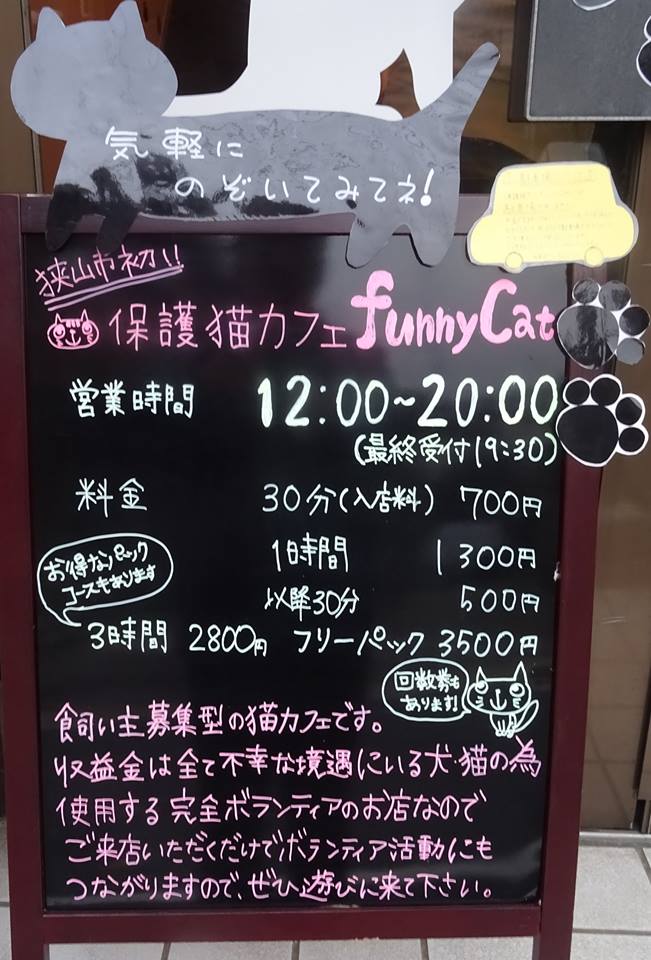 気軽に
のぞいてみてネ!
狭山市初!!
保護猫カフェ funnyCat
営業時間 12:00~20:00
(最終受付19:30)
料金 30分(入店料) 700円
1時間 1300円
お得なパック
コースもあります
以降30分 500円
3時間 2800円 フリーパック 3500円
回数券も
あります!
飼い主募集型の猫カフェです。
収益金は全て不幸な境遇にいる犬・猫の為
使用する完全ボランティアのお店なので
ご来店いただくだけでボランティア活動にも
つながりますので、ぜひ遊びに来て下さい。